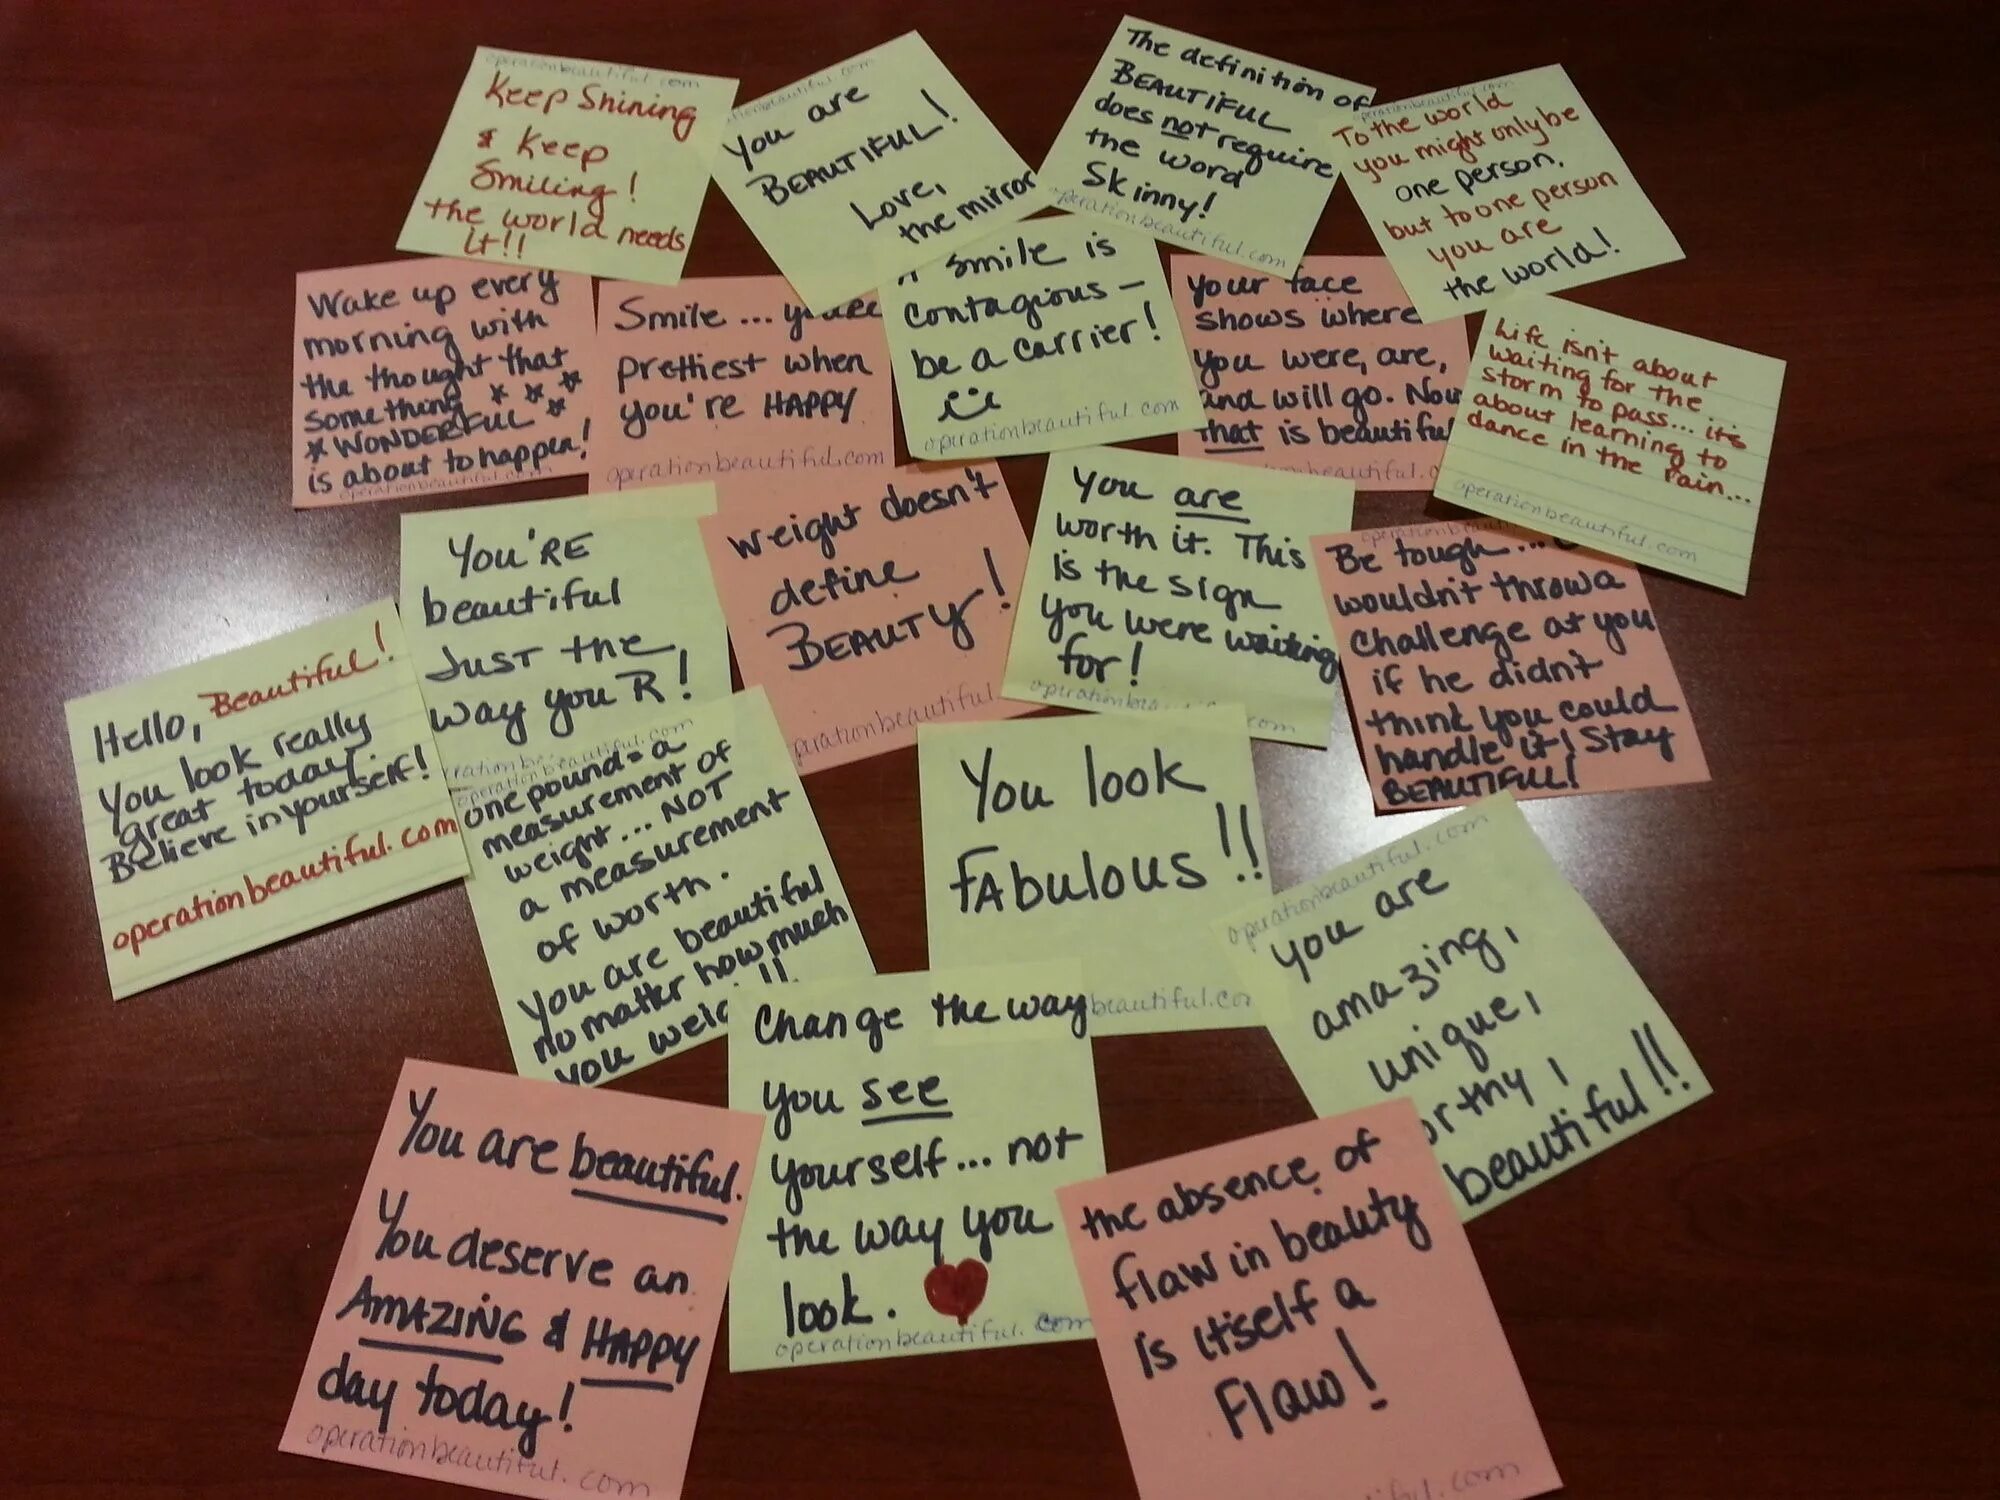 operationbeautiful.com
Keep Shining
& Keep
Smiling!
the world needs
it!!
operationbeautiful.com
You are
BEAUTIFUL!
Love,
the mirror
The definition of
BEAUTIFUL
does not require
the word
Skinny!
operationbeautiful.com
operationbeautiful.com
To the world
you might only be
one person,
but to one person
you are
the world!
Wake up every
morning with
the thought that
something
WONDERFUL
is about to happen!
operationbeautiful.com
Smile...
prettiest when
you're HAPPY
operationbeautiful.com
A smile is
contagious –
be a carrier!
operationbeautiful.com
Your face
shows where
you were, are,
and will go. Now
that is beautiful
operationbeautiful.
Life isn't about
waiting for the
storm to pass... it's
about learning to
dance in the rain...
operationbeautiful.com
You'RE
beautiful
Just the
way you R!
Weight doesn't
define
BEAUTY!
operationbeautiful.
You are
worth it. This
is the sign
you were waiting
for!
operationbeautiful.com
operationbeautiful
Be tough...
wouldn't throw a
challenge at you
if he didn't
think you could
handle it! Stay
BEAUTIFUL!
Hello, Beautiful!
You look really
great today.
Believe in yourself!
operationbeautiful.com
operationbeautiful.com
one pound = a
measurement of
weight... NOT
a measurement
of worth.
You are beautiful
no matter how much
you weigh!!
You look
FAbulous!!
beautiful.com
operationbeautiful.com
you are
amazing,
unique,
worthy,
beautiful!!
Change the way
you see
yourself... not
the way you
look.
operationbeautiful.com
You are beautiful.
You deserve an
AMAZING & HAPPY
day today!
operationbeautiful.com
the absence of
flaw in beauty
is itself a
Flaw!
operationbeautiful.com